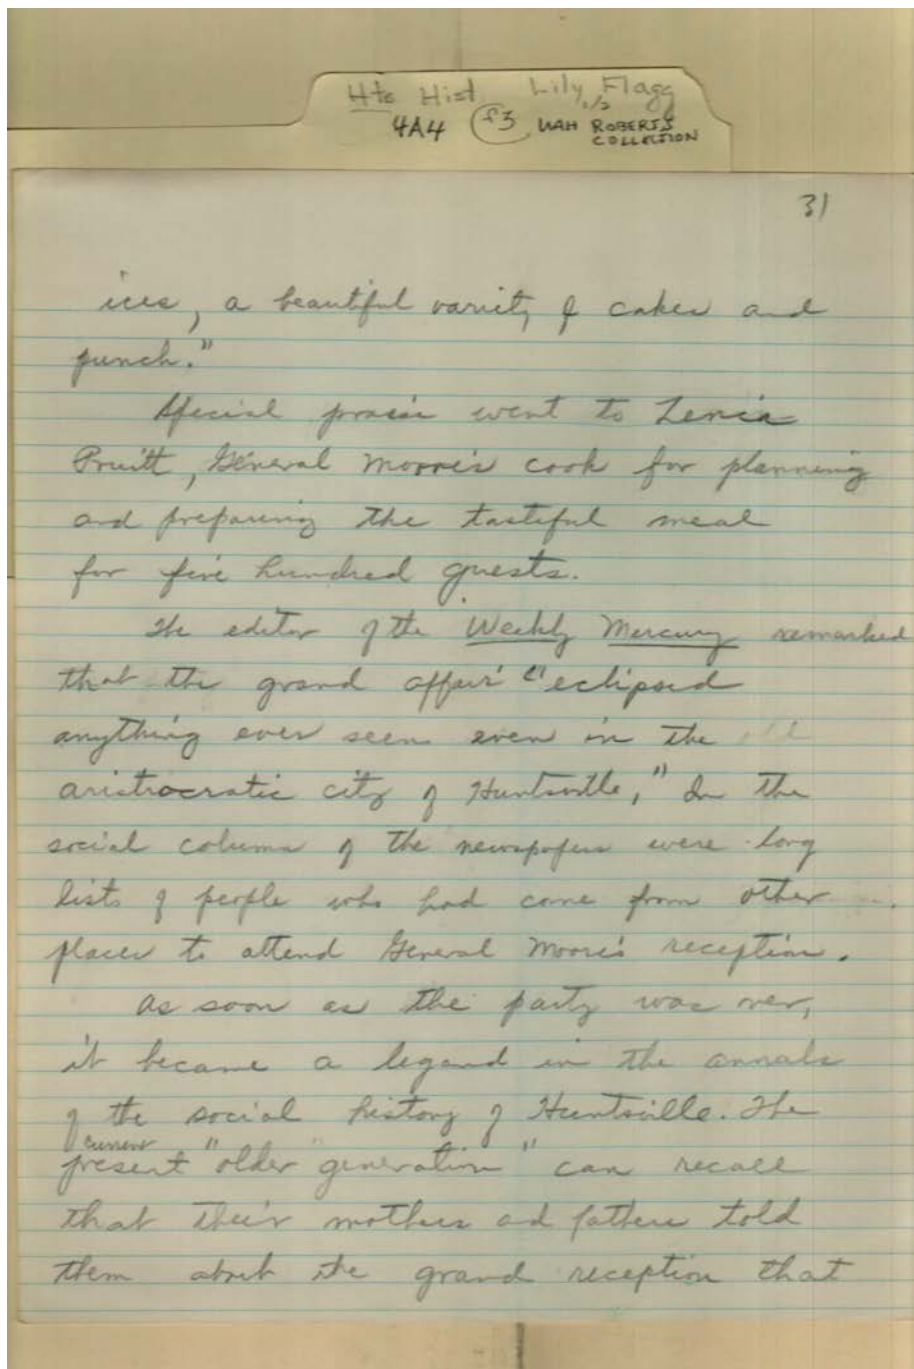 Hts Hist Lily Flagg
1/2
4A4 f3 UAH ROBERTS
COLLECTION
31
ices, a beautiful variety of cakes and
punch."
Special praise went to Zenia
Pruitt, General Moore's cook for planning
and preparing the tasteful meal
for five hundred guests.
The editor of the Weekly Mercury remarked
that the grand affair "eclipsed
anything ever seen even in the old
aristrocratic city of Huntsville," In the
social column of the newspapers were long
lists of people who had come from other
places to attend General Moore's reception.
As soon as the party was over,
it became a legand in the annals
of the social history of Huntsville. The
current
present "older generation" can recall
that their mothers and fathers told
them about the grand reception that